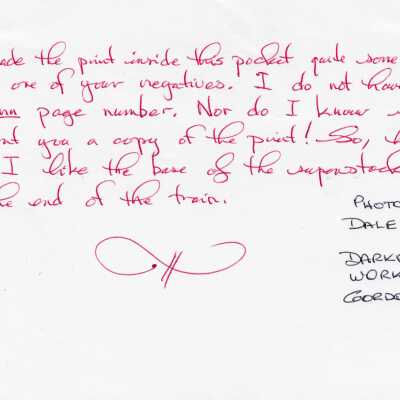 ade the print inside this pocket quite some
one of your negatives. I do not have
nn page number. Nor do I know
nt you a copy of the print! So,
I like the base of the superstack
he end of the train.
PHOTO
DALE
DARKR
WORK
GORDO